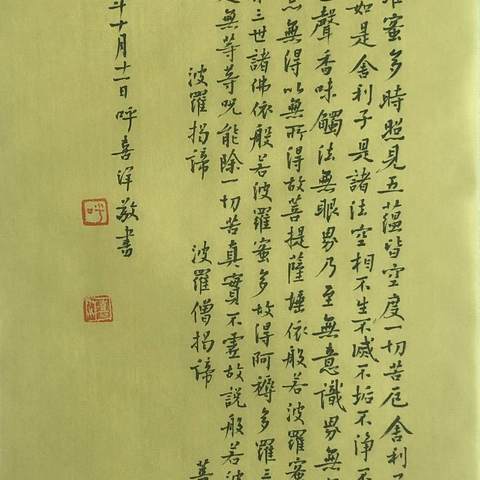 蜜多時照見五蘊皆空度一切苦厄舍利子
如是舍利子是諸法空相不生不滅不垢不淨不
聲香味觸法無眼界乃至無意識界無
無得以無所得故菩提薩埵依般若波羅蜜
三世諸佛依般若波羅蜜多故得阿耨多羅三
是無等等呪能除一切苦真實不虛故說般若波
波羅揭諦 波羅僧揭諦 菩
年十月十一日呼喜洋敬書
呼